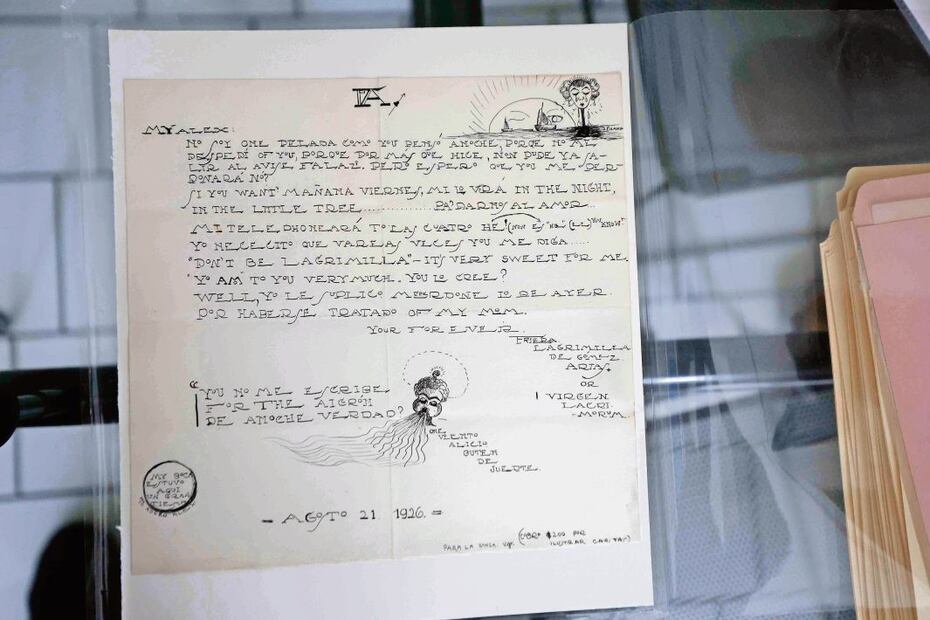 MY ALEX:
NO SOY ONE PELADA COMO YOU PENSÓ ANOCHE, PORQE NO ME
DESPEDÍ OF YOU, PORQUE POR MÁS QUE HICE, NON PUDE YA SA-
LIR AL
PERO ESPERO QUE YOU ME PER-
DONARÁ NO?
SI YOU WANT MAÑANA VIERNES, MI LO VERA IN THE NIGHT,
IN THE LITTLE TREE............ PA'DARNOS AL AMOR...
MI TELEPHONEARÁ TO LAS CUATRO HE! (NON ES "HE" YOU KNOW"
YO NECECITO QUE VARIAS VECES YOU ME DIGA.....
"DON'T BE LAGRIMILLA" - IT'S VERY SWEET FOR ME.
"YO AM" TO YOU VERY MUCH. YOU LO CREE?
WELL, YO LE SUPLICO ME LO DE AYER.
POR HABERSE TRATADO OF MY MOM.
YOUR FOR EVEIR.
FRIEDA
LAGRIMILLA
DE GÓMEZ
ARIAS.
OR
VIRGEN
LACRI-
MORUM.
"YOU NO ME ESCRIBE
FOR THE AIGRÓN
DE ANOCHE VERDAD?
ONE
VIENTO
ALICIO
DE
MY BOCA
ESTUVO
AQUI
UN GRAN
- AGOTO 21 1926. =
PARA LA
(COBRO $2.00 POR
ILUSTRAR CARTAS)